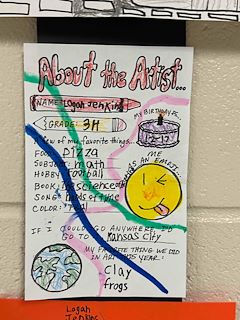 About the Artist...
NAME: Logan Jenkins
GRADE: 3H
MY BIRTHDAY IS...
12-17
A few of my favorite things...
FOOD: pizza
SUBJECT: math
HOBBY: football
BOOK: science
SONG:
COLOR:
ME
AS AN EMOJI...
IF I COULD GO ANYWHERE I'D
GO TO Kansas City
MY FAVORITE THING WE DID
IN ART THIS YEAR:
Clay
frogs
Logan
Jenkins